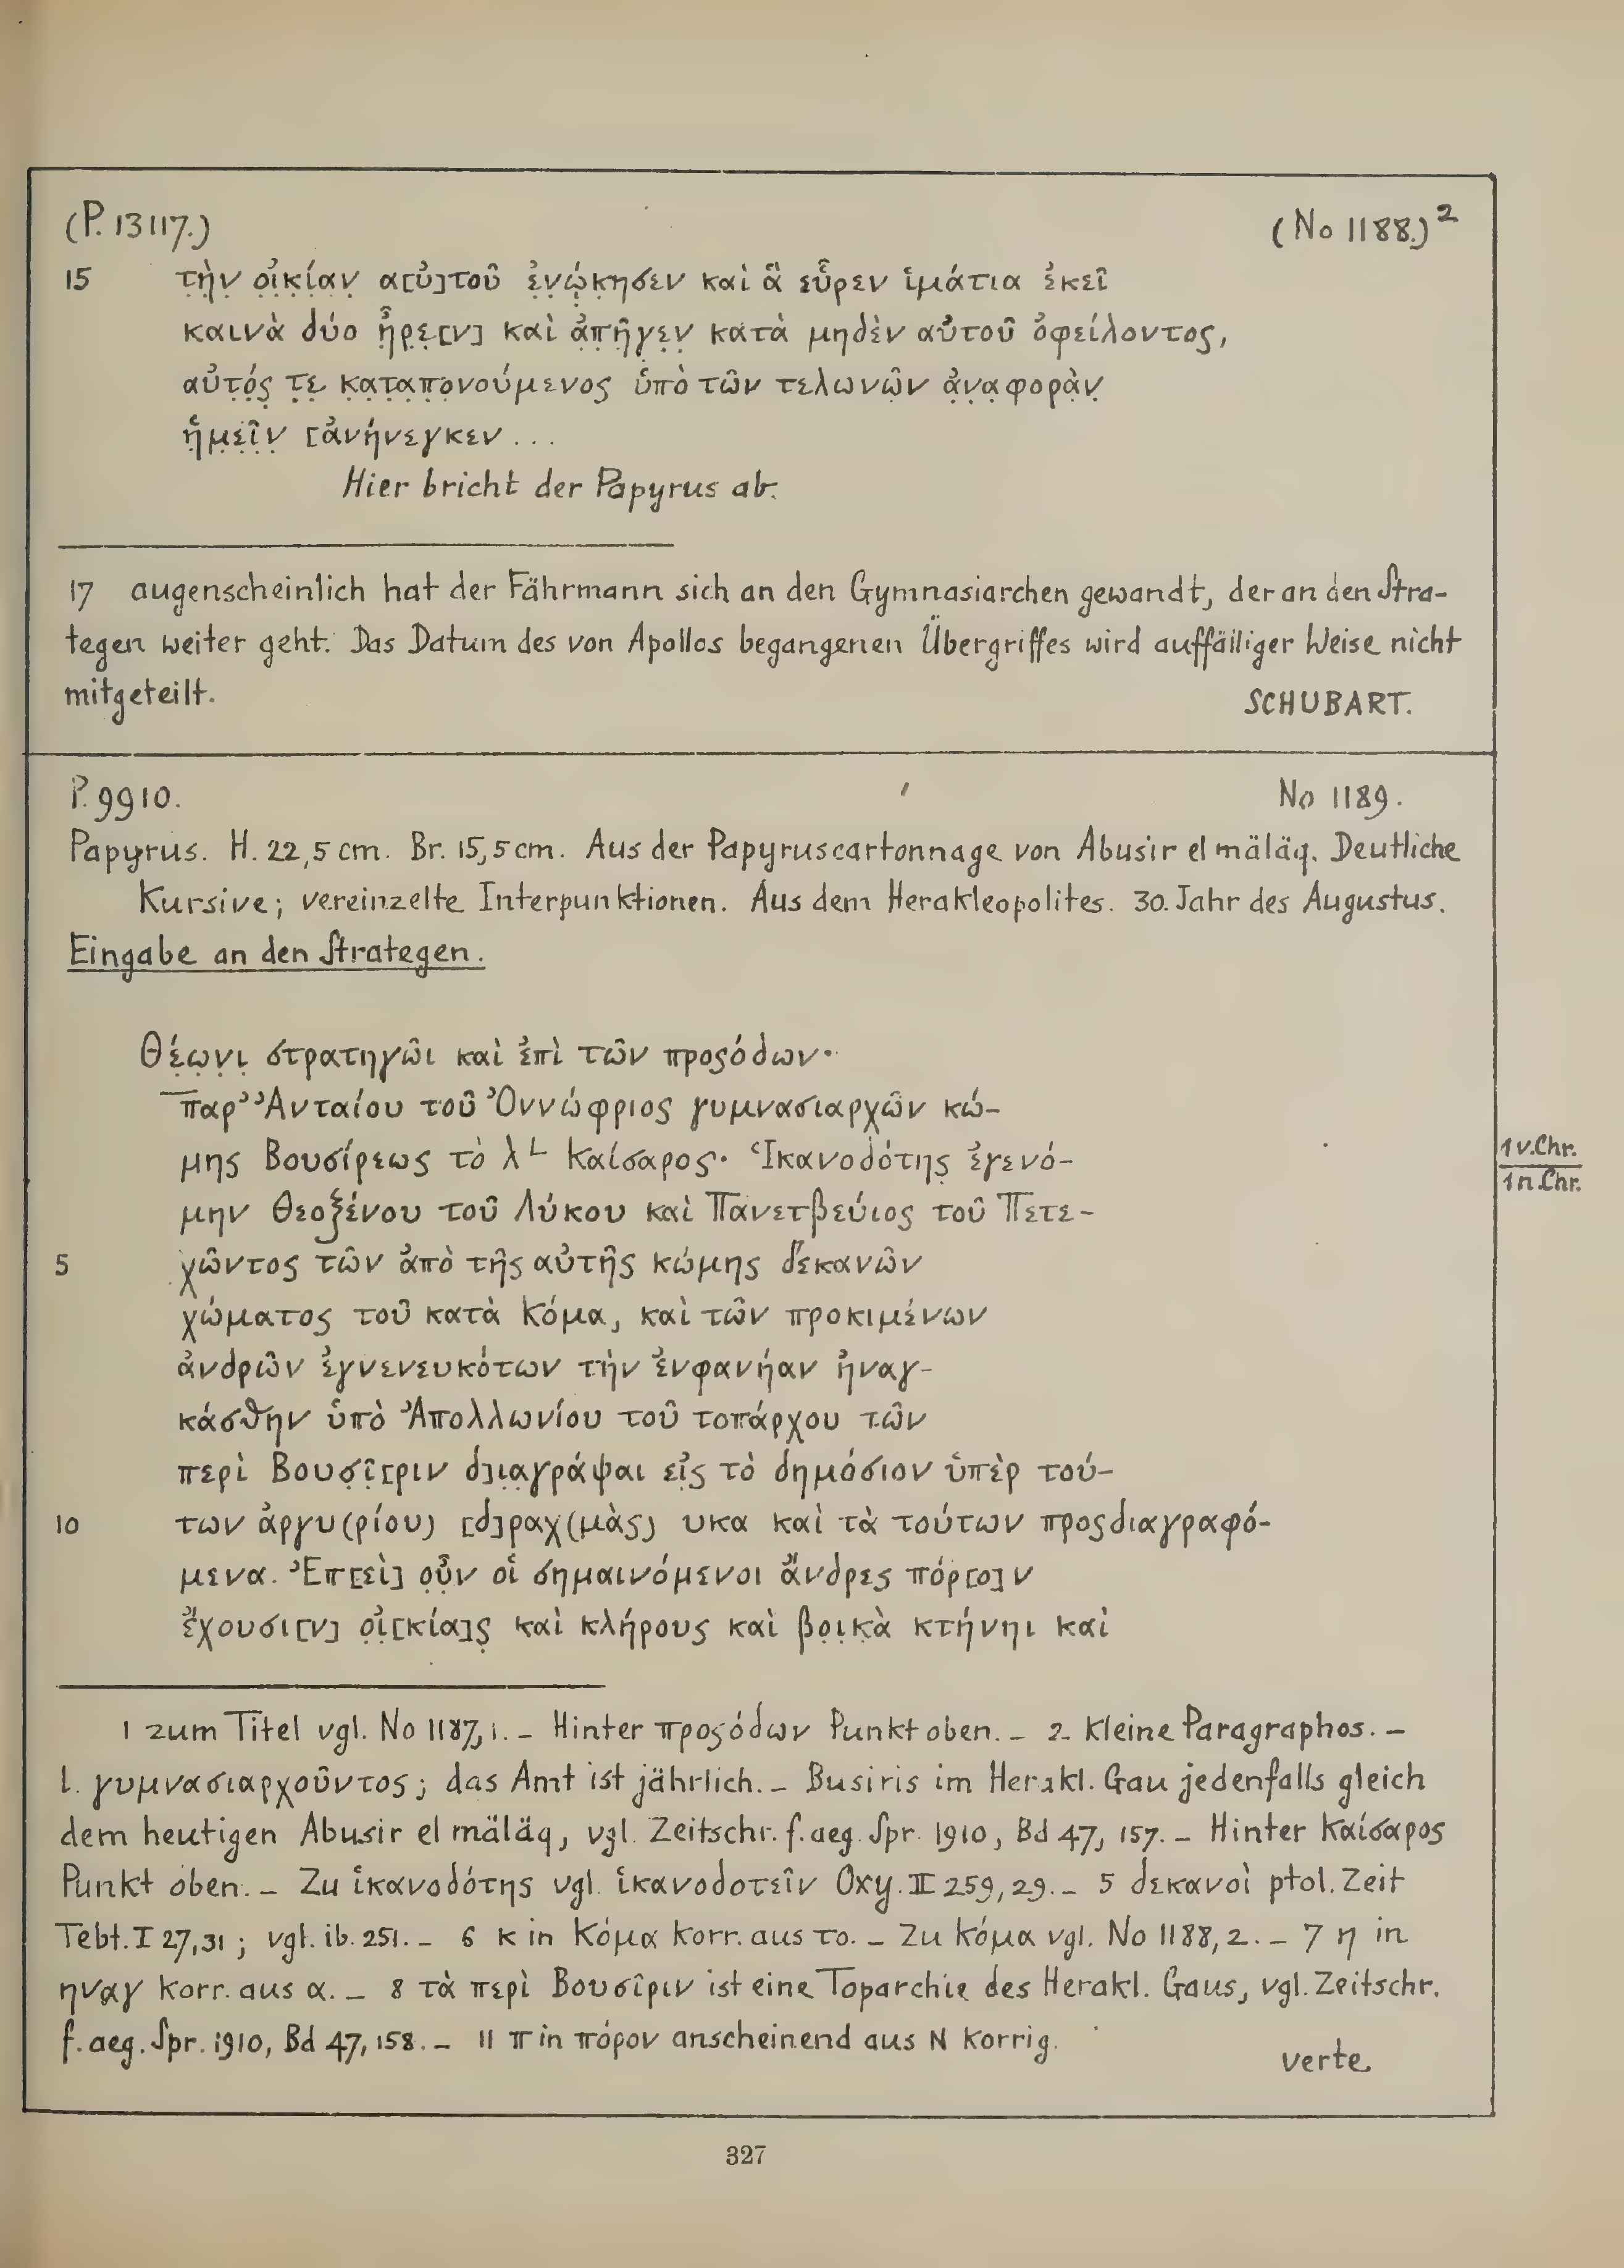 (P. 13117.) (No 1188.)²
15 τ̣ὴ̣ν̣ ο̣ἰ̣κ̣ί̣α̣ν̣ α[ὐ]τοῦ ἐ̣ν̣ῴ̣κ̣ησεν καὶ ἃ εὗρεν ἱμάτια ἐκεῖ
καινὰ δύο ἦ̣ρ̣ε̣[ν] καὶ ἀ̣π̣ῆ̣γ̣ε̣ν̣ κατὰ μηδὲν αὐτοῦ ὀφείλοντος,
αὐτ̣ό̣ς̣ τ̣ε̣ κ̣α̣τ̣α̣π̣ο̣νούμενος ὑπὸ τῶν τελωνῶ̣ν ἀ̣ν̣α̣φορὰ̣ν̣
ἡ̣μ̣ε̣ῖ̣ν̣ [ἀνήνεγκεν ...
Hier bricht der Papyrus ab.
17 augenscheinlich hat der Fährmann sich an den Gymnasiarchen gewandt, der an den Stra-
tegen weiter geht. Das Datum des von Apollos begangenen Übergriffes wird auffälliger Weise nicht
mitgeteilt. SCHUBART.
P. 9910. No 1189.
Papyrus. H. 22,5 cm. Br. 15,5 cm. Aus der Papyruscartonnage von Abusir el mäläq. Deutliche
Kursive; vereinzelte Interpunktionen. Aus dem Herakleopolites. 30. Jahr des Augustus.
Eingabe an den Strategen.
Θέ̣ω̣ν̣ι̣ στρατηγῶι καὶ ἐπὶ τῶν προςόδων·
παρ' Ἀνταίου τοῦ Ὀννώφριος γυμνασιαρχῶν κώ-
μης Βουσίρεως τὸ λ L Καίσαρος· Ἱκανοδότης ἐγενό-
μην Θεοξένου τοῦ Λύκου καὶ Πανετβεύιος τοῦ Πετε-
1 v. Chr.
1 n. Chr.
5 χῶντος τῶν ἀπὸ τῆς αὐτῆς κώμης δεκανῶν
χώματος τοῦ κατὰ Κόμα, καὶ τῶν προκιμένων
ἀνδρῶν ἐγνενευκότων τὴν ἐνφανήαν ἠναγ-
κάσθην ὑπὸ Ἀπολλωνίου τοῦ τοπάρχου τῶν
περὶ Βουσ̣ῖ̣[ριν δ]ι̣α̣γράψαι εἰ̣ς τὸ δημόσιον ὑπὲρ τού-
10 των ἀργυ(ρίου) [δ]ραχ(μὰς) υκα καὶ τὰ τούτων προςδιαγραφό-
μενα. Ἐπ[εὶ] ο̣ὖ̣ν οἱ σημαινόμενοι ἄνδρες πόρ[ο]ν
ἔχουσι[ν] ο̣ἰ̣[κία]ς̣ καὶ κλήρους καὶ βο̣ι̣κ̣ὰ κτήνηι καὶ
1 zum Titel vgl. No 1187, 1. – Hinter προςόδων Punkt oben. – 2 kleine Paragraphos. –
l. γυμνασιαρχοῦντος; das Amt ist jährlich. – Busiris im Herakl. Gau jedenfalls gleich
dem heutigen Abusir el mäläq, vgl. Zeitschr. f. aeg. Spr. 1910, Bd 47, 157. – Hinter Καίσαρος
Punkt oben. – Zu ἱκανοδότης vgl. ἱκανοδοτεῖν Oxy. II 259, 29. – 5 δεκανοὶ ptol. Zeit
Tebt. I 27, 31; vgl. ib. 251. – 6 κ in Κόμα korr. aus το. – Zu Κόμα vgl. No 1188, 2. – 7 η in
ηναγ korr. aus α. – 8 τὰ περὶ Βουσῖριν ist eine Toparchie des Herakl. Gaus, vgl. Zeitschr.
f. aeg. Spr. 1910, Bd 47, 158. – 11 π in πόρον anscheinend aus N korrig.
verte
327